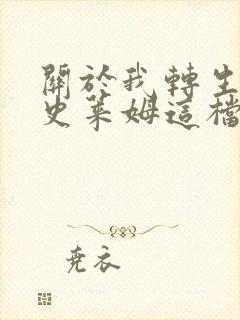 關於我轉生
史萊姆這檔
堯衣